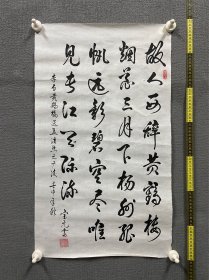 故人西辞黄鹤楼
烟花三月下扬州孤
帆远影碧空尽唯
见长江天际流
李白黄鹤楼送孟浩然之广陵